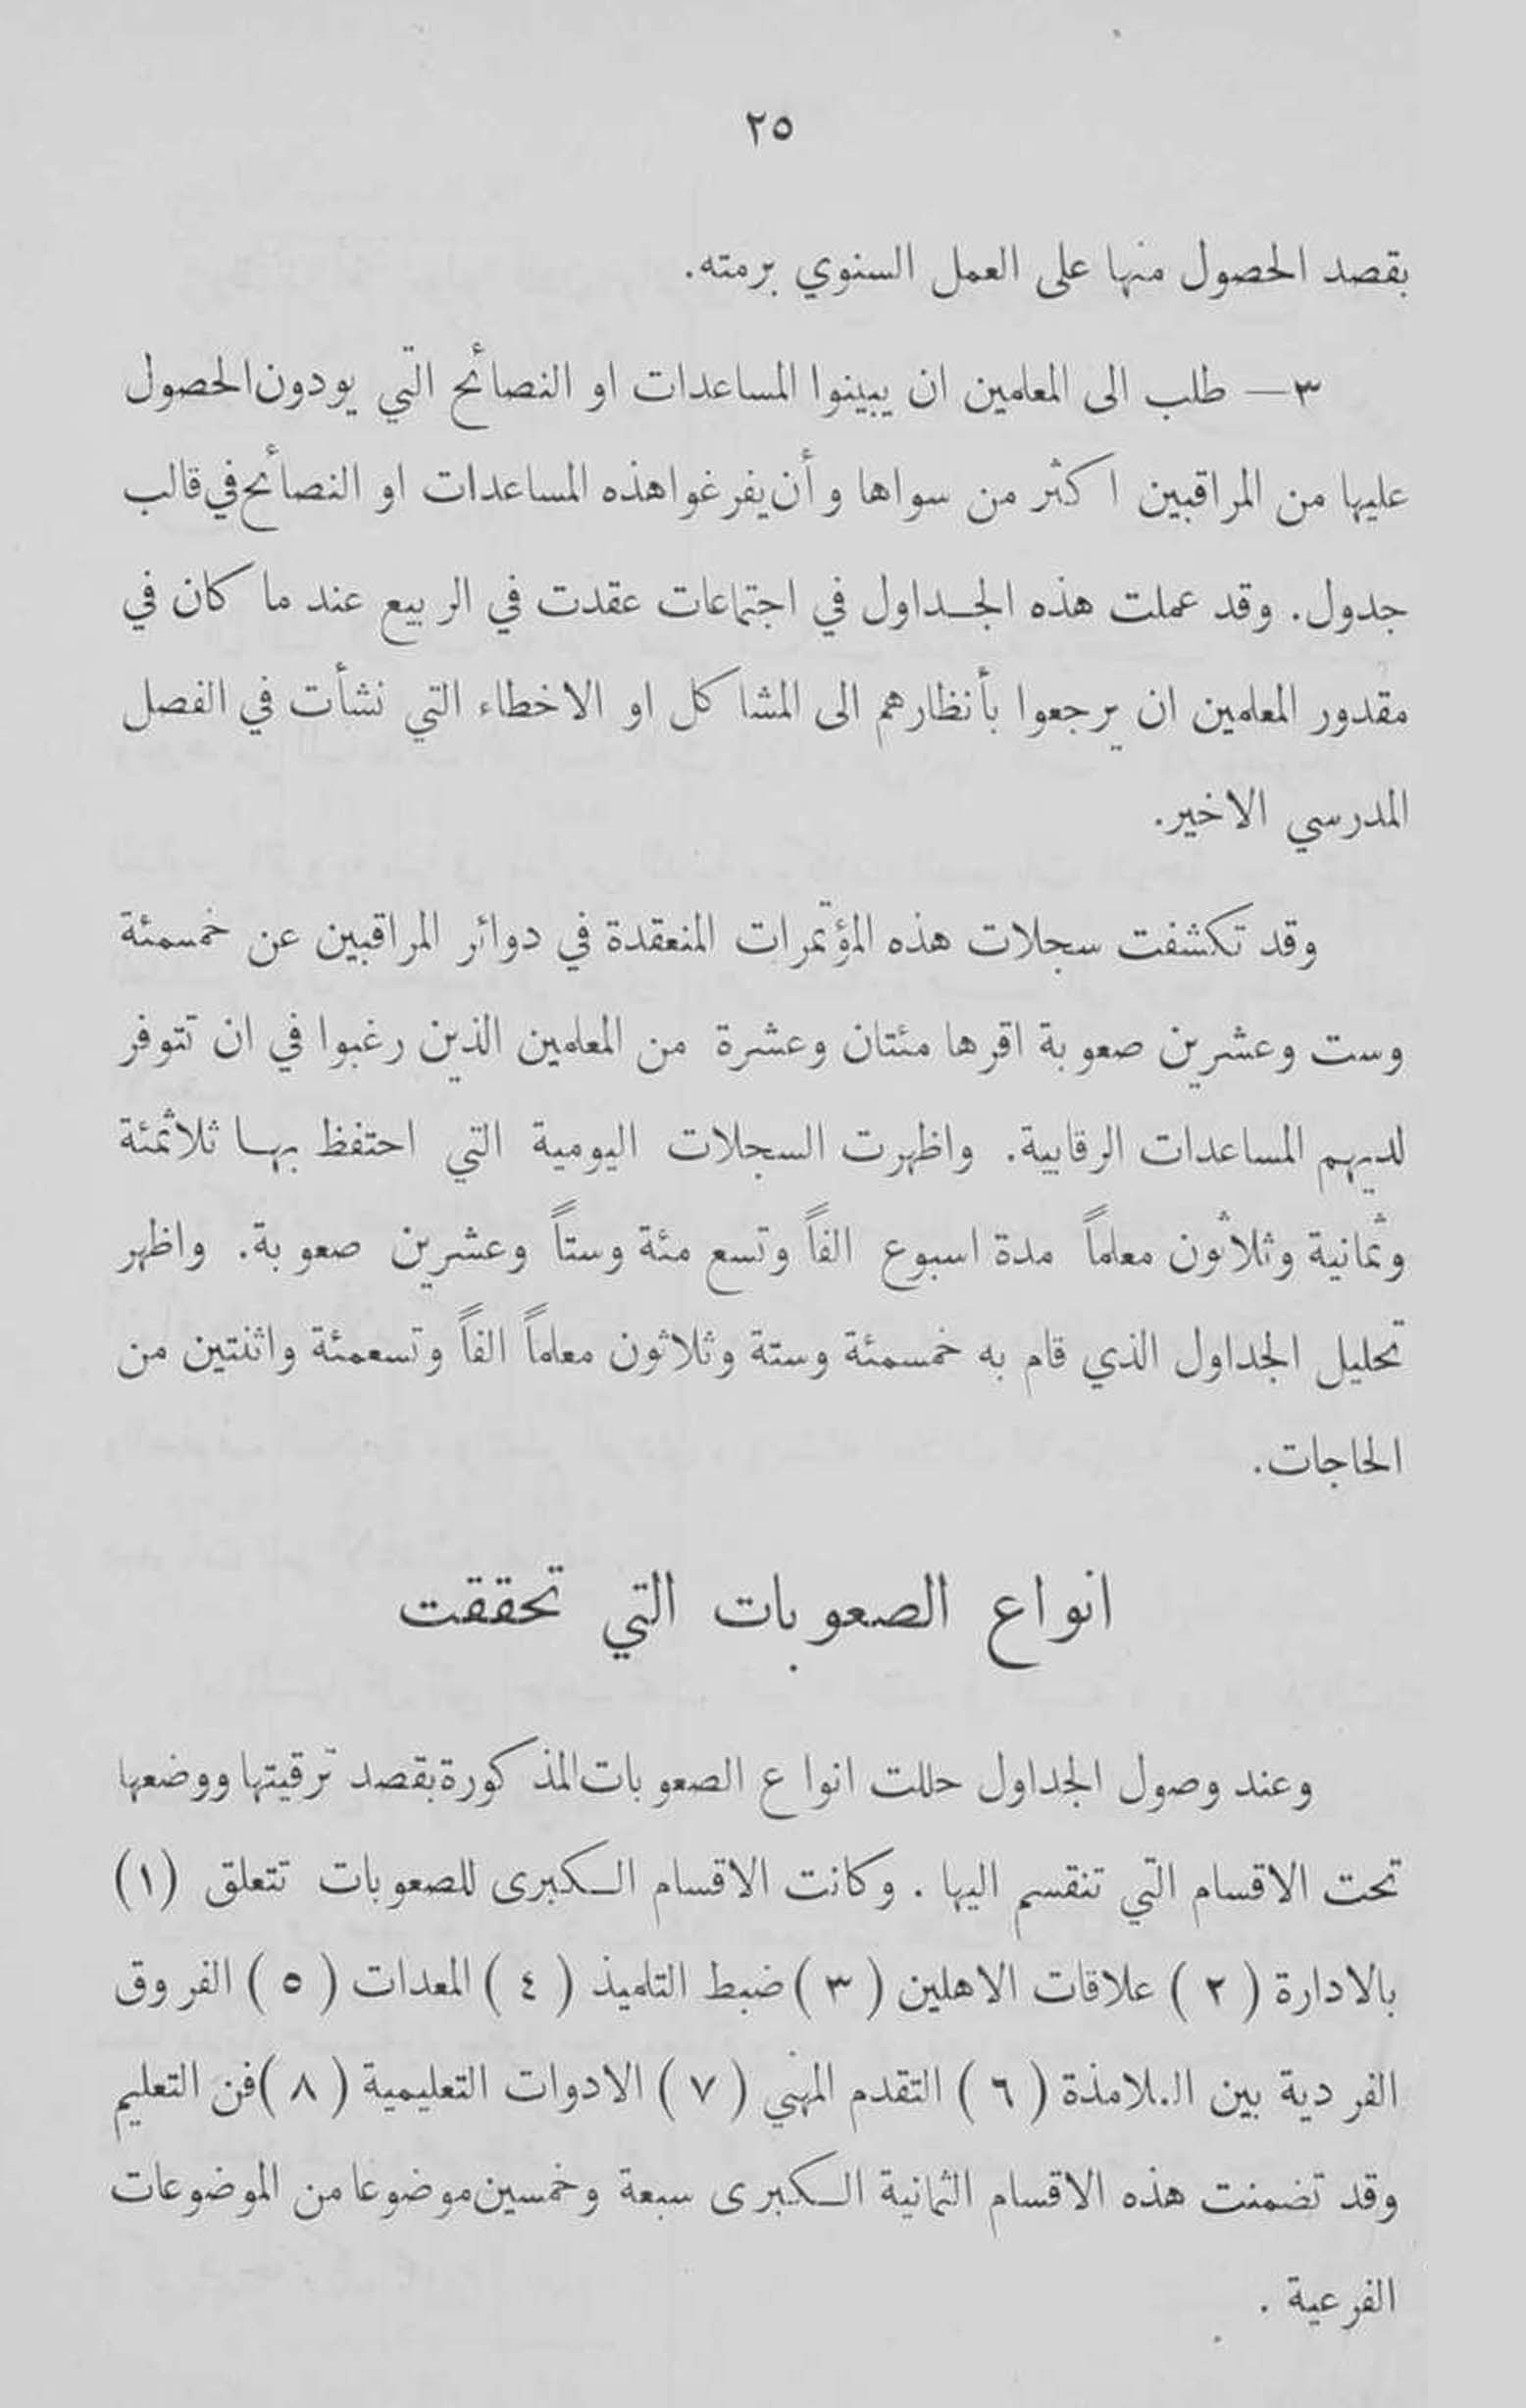 ٢٥
بقصد الحصول منها على العمل السنوي برمته.
٣— طلب الى المعلمين ان يبينوا المساعدات او النصائح التي يودون الحصول
عليها من المراقبين اكثر من سواها وأن يفرغوا هذه المساعدات او النصائح في قالب
جدول. وقد عملت هذه الجداول في اجتماعات عقدت في الربيع عند ما كان في
مقدور المعلمين ان يرجعوا بأنظارهم الى المشاكل او الاخطاء التي نشأت في الفصل
المدرسي الاخير.
وقد تكشفت سجلات هذه المؤتمرات المنعقدة في دوائر المراقبين عن خمسمئة
وست وعشرين صعوبة اقرها مئتان وعشرة من المعلمين الذين رغبوا في ان تتوفر
لديهم المساعدات الرقابية. واظهرت السجلات اليومية التي احتفظ بها ثلاثمئة
وثمانية وثلاثون معلماً مدة اسبوع الفاً وتسع مئة وستاً وعشرين صعوبة. واظهر
تحليل الجداول الذي قام به خمسمئة وستة وثلاثون معلماً الفاً وتسعمئة واثنتين من
الحاجات.
انواع الصعوبات التي تحققت
وعند وصول الجداول حللت انواع الصعوبات المذكورة بقصد ترقيتها ووضعها
تحت الاقسام التي تنقسم اليها . وكانت الاقسام الكبرى للصعوبات تتعلق (١)
بالادارة (٢) علاقات الاهلين (٣) ضبط التلميذ (٤) المعدات (٥) الفروق
الفردية بين التلامذة (٦) التقدم المهني (٧) الادوات التعليمية (٨) فن التعليم
وقد تضمنت هذه الاقسام الثمانية الكبرى سبعة وخمسين موضوعا من الموضوعات
الفرعية .